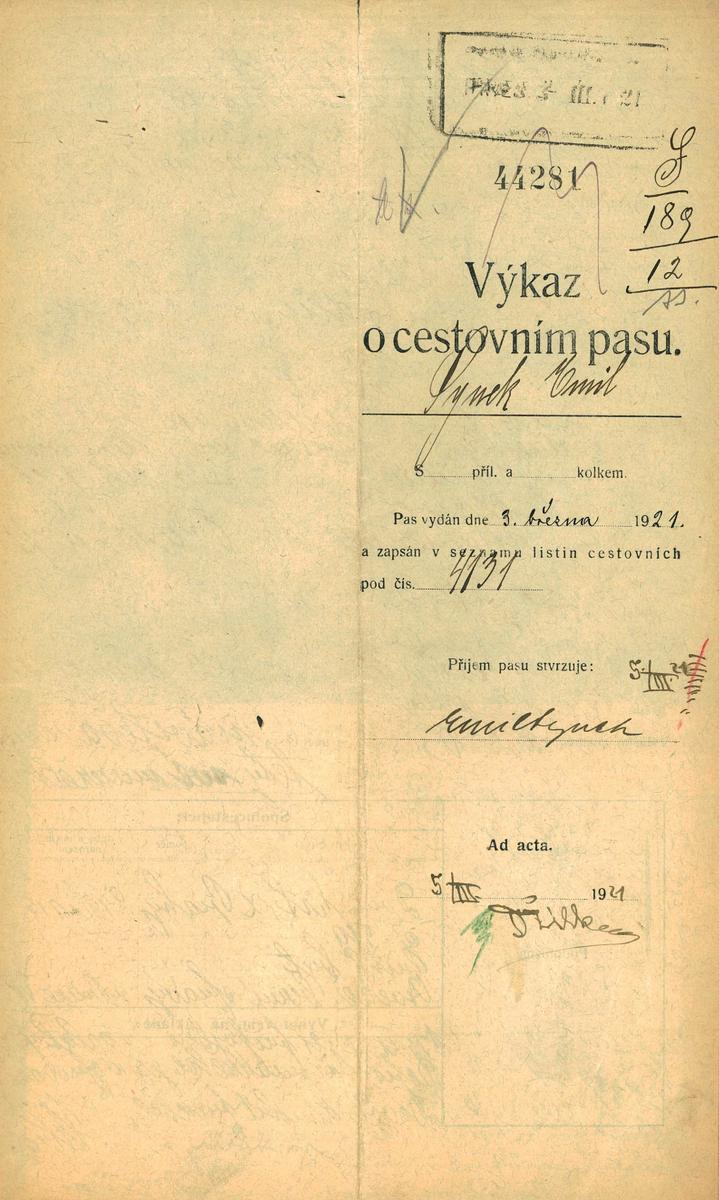 44281
S
189
12
Výkaz
o cestovním pasu.
Synek Emil
S příl. a kolkem.
Pas vydán dne 3. března 1921.
a zapsán v seznamu listin cestovních
pod čís. 4131
Příjem pasu stvrzuje: 5/III. 21
Emil Synek
Ad acta.
5/III 1921